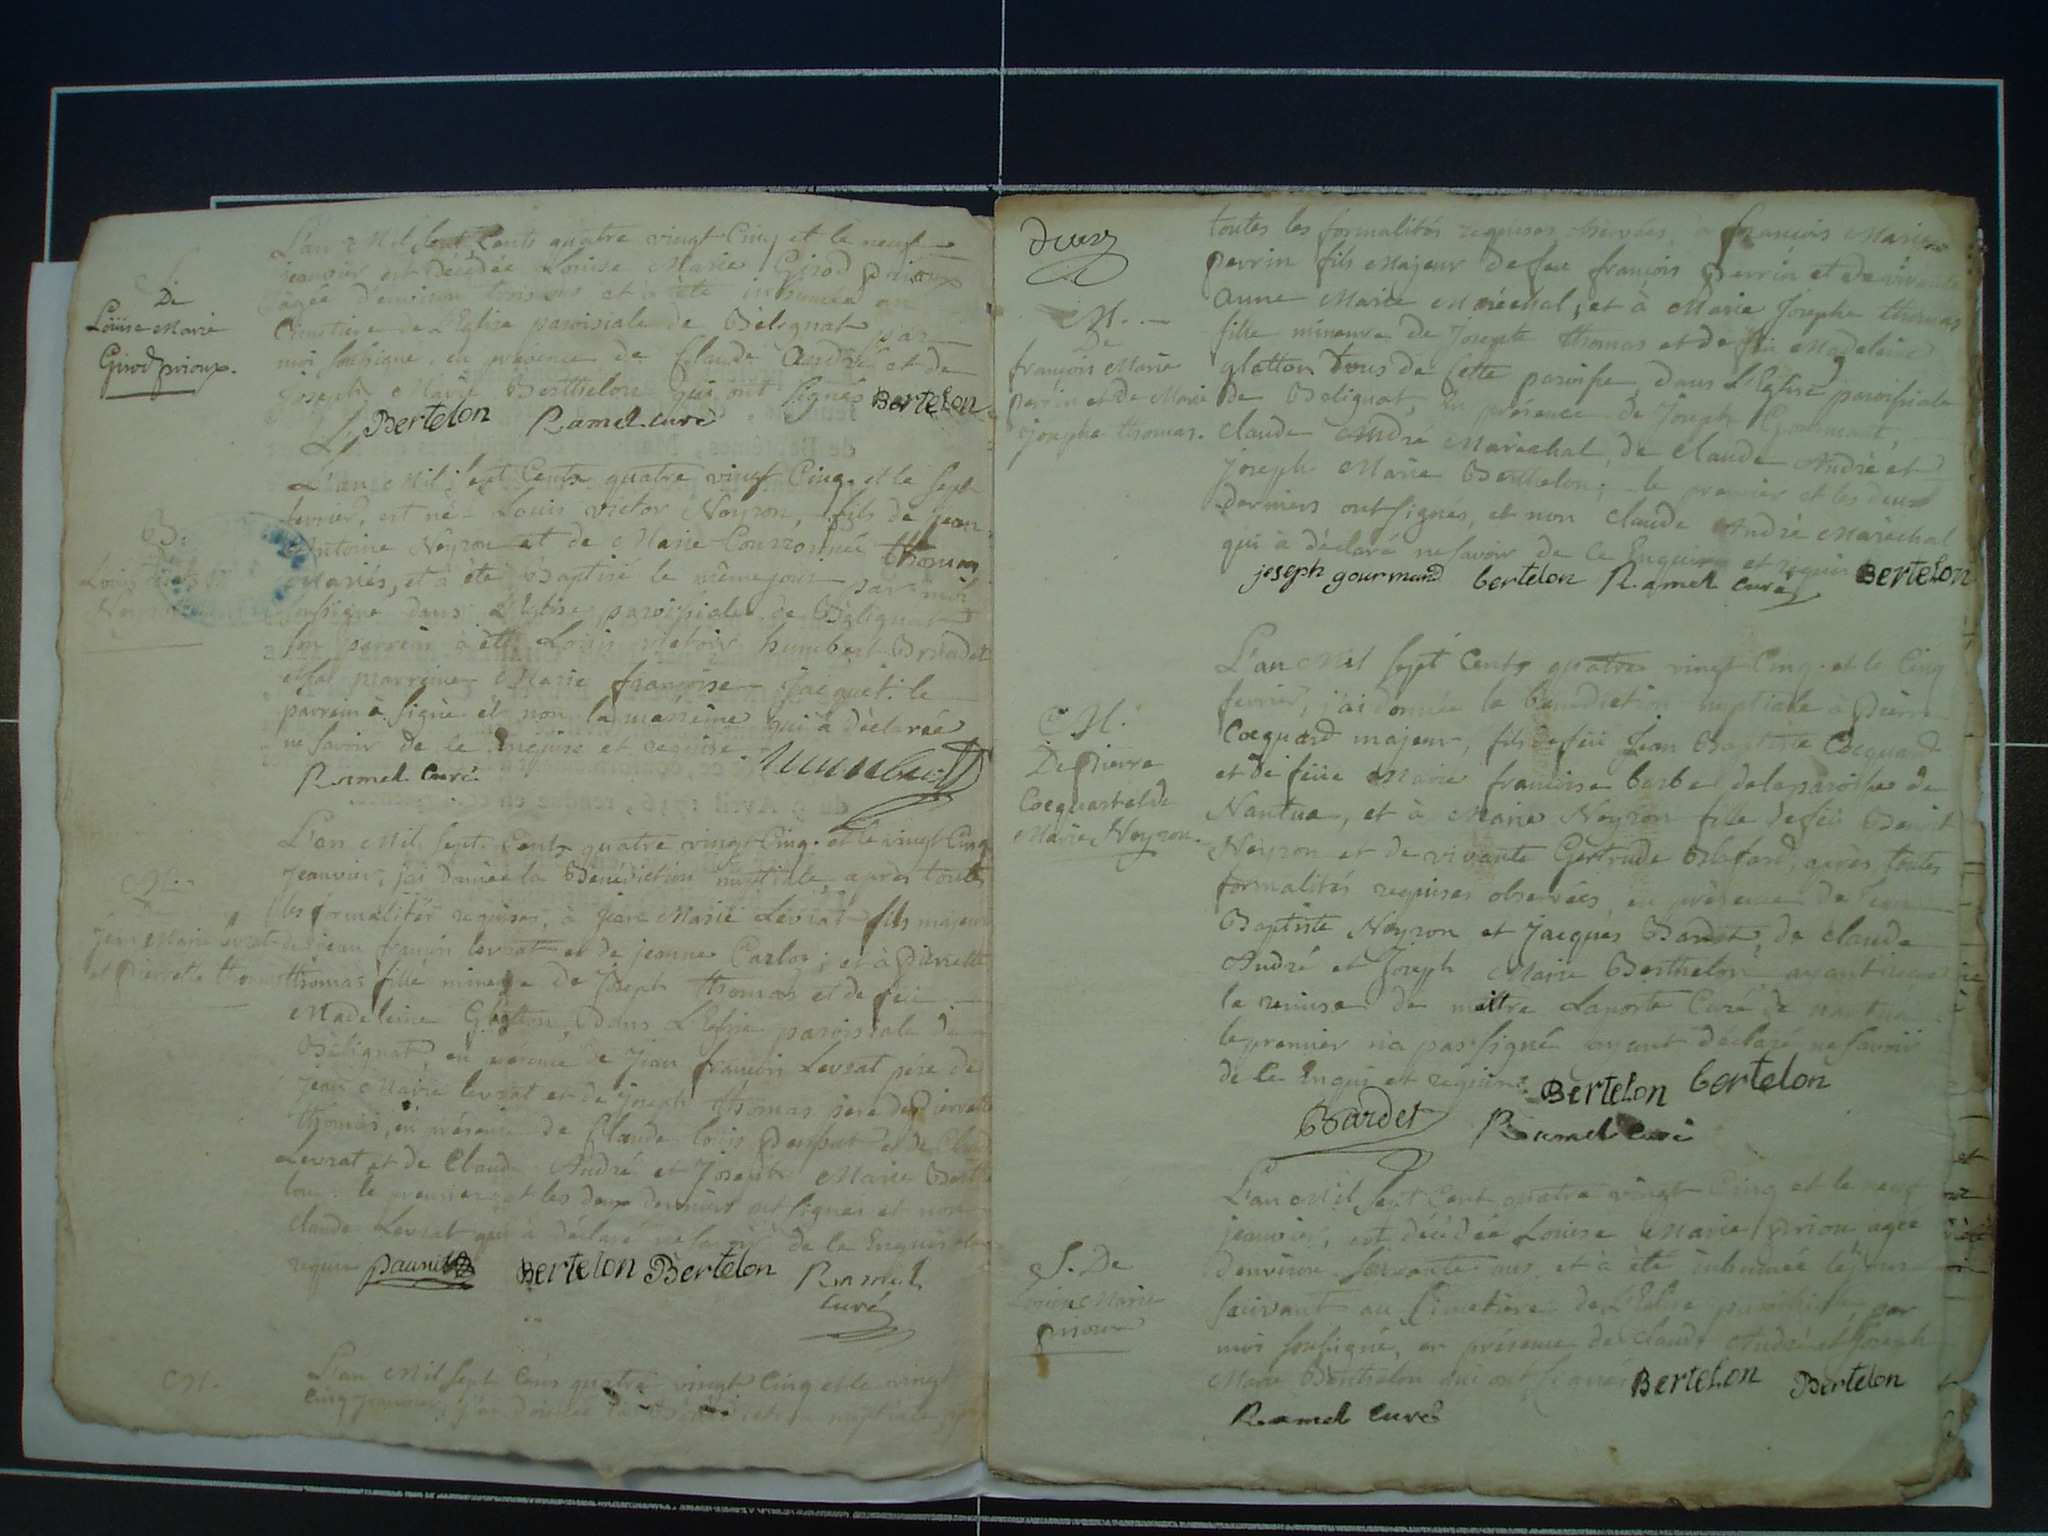 S.
De
Louise Marie
Girod prioux.
L'an Mil sept Cents quatre vingt Cinq et le neuf
jeanvier est décédée Louise Marie Girod prioux
agée d'environ trois ans et à été inhumée au
Cimetiere de L'Eglise paroisiale de Bélignat par
moi soussigné, en présence de Claude André et de
Joseph Marie Berthelon qui ont signés Bertelon
Bertelon Ramel curé
B.
Louis Victor
Neyron
L'an Mil sept Cents quatre vingt Cinq et le sept
fevrier, est né Louis Victor Neyron, fils de jean
Antoine Neyron et de Marie Courronnée thomas
Mariés, et à été Baptisé le même jour par moi
soussigné dans L'Eglise paroissiale de Bélignat
son parrein à été Louis victoir humbert
et sa marreine Marie françoise Jacquet. le
parrein à signé et non la marreine qui à déclarée
ne savoir de ce Enquise et requise.
Ramel Curé humbert
M.
jean Marie levrat
et pierrette thomas
L'an Mil sept Cents quatre vingt Cinq et le vingt Cinq
jeanvier, j'ai donnée la Bénédiction nuptiale après toutes
les formalités requises, à jean Marie Levrat fils majeur
de jean françois levrat et de jeanne Carloz; et à pierrette
thomas fille mineure de Joseph thomas et de feüe
Madeleine Glatton, Dans L'Eglise paroissiale de
Bélignat, en présence de jean françois Levrat père de
jean Marie levrat et de joseph thomas pere de pierrette
thomas, en présence de Claude louis et de Claude
Levrat et de Claude André et Joseph Marie Berthe
lon. le premier et les deux derniers ont signés et non
claude Levrat qui à déclaré ne savoir de ce Enquis et
requis Bertelon Bertelon Ramel
Curé
M.
L'an Mil sept Cens quatre vingt Cinq et le vingt
Cinq jeanvier, j'ai donnée la Bénédiction nuptiale, après
deux
M.
De
françois Marie
perrin et de Marie
josephe thomas.
toutes les formalités requises observées, à françois Marie
perrin fils Majeur de feu françois perrin et de vivante
Anne Marie Maréchal, et à Marie Josephe thomas
fille mineure de Joseph thomas et de feüe Madeleine
glatton tous de Cette paroisse, dans L'Eglise paroissiale
de Bélignat, En présence de Joseph Gourmand,
Claude André Maréchal, de Claude André et
Joseph Marie Berthelon; le premier et les deux
derniers ont signés, et non Claude André Maréchal
qui à déclaré ne savoir de Ce Enquis et requis Bertelon
joseph gourmand bertelon Ramel Curé
M.
De Pierre
Cocquard et de
Marie Neyron.
L'an Mil sept Cents quatre vingt Cinq et le Cinq
fevrier, j'ai donnée la bénédiction nuptiale à Pierre
Cocquard majeur, fils de feu Jean Baptiste Cocquard
et de feüe Marie françoise barbe de la paroisse de
Nantua, et à Marie Neyron fille de feu Benoit
Neyron et de vivante Gertrude après toutes
formalités requises observées, en présence de jean
Baptiste Neyron et Jacques Bardet, de claude
André et Joseph Marie Berthelon ayant
la remise de maitre Laporte Curé de nantua
le premier n'a pas signé ayant déclaré ne savoir
de Ce Enquis et requis. Bertelon bertelon
Bardet Ramel Curé
S. De
Louise Marie
prioux
L'an Mil Sept Cent quatre vingt Cinq et le neuf
jeanvier, est décédée Louise Marie Prioux agée
d'environ soixante ans, et à été inhumée le jour
suivant au Cimetiere de L'Eglise paroissiale, par
moi soussigné, en présence de claude André et Joseph
Marie Berthelon qui ont signés Bertelon Bertelon
Ramel Curé